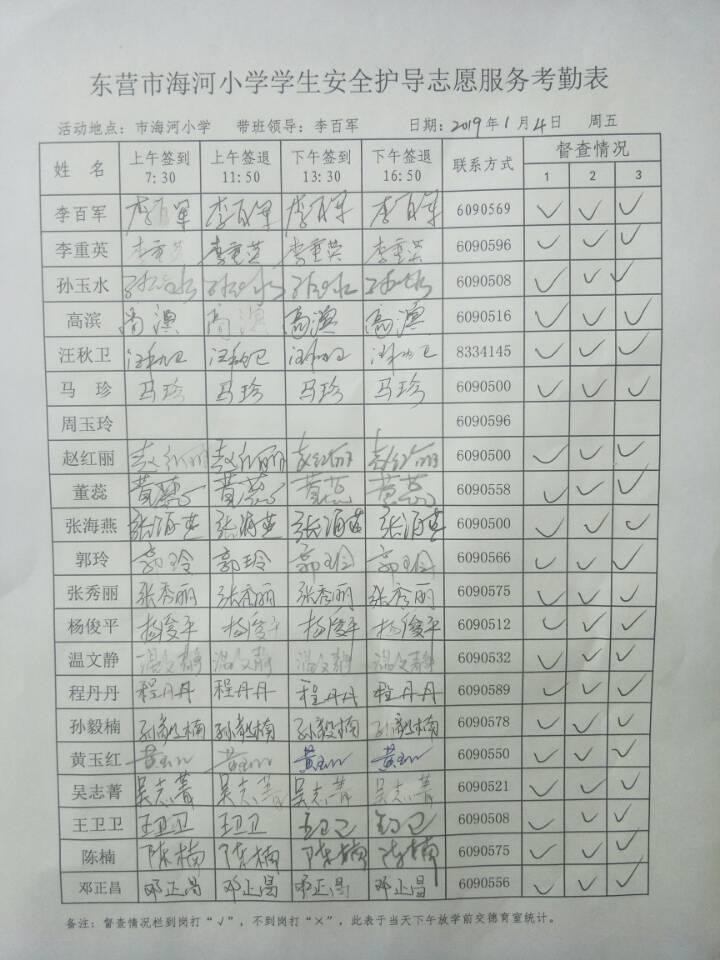 东营市海河小学学生安全护导志愿服务考勤表
活动地点：市海河小学 带班领导：李百军 日期：2019年1月4日 周五
姓 名 上午签到 7:30 上午签退 11:50 下午签到 13:30 下午签退 16:50 联系方式 督查情况 1 2 3
李百军 李百军 李百军 李百军 李百军 6090569 ✓ ✓ ✓
李重英 李重英 李重英 李重英 李重英 6090596 ✓ ✓ ✓
孙玉水 孙玉水 孙玉水 孙玉水 孙玉水 6090508 ✓ ✓ ✓
高滨 高滨 高滨 高滨 高滨 6090516 ✓ ✓ ✓
汪秋卫 汪秋卫 汪秋卫 汪秋卫 汪秋卫 8334145 ✓ ✓ ✓
马 珍 马珍 马珍 马珍 马珍 6090500 ✓ ✓ ✓
周玉玲 6090596
赵红丽 赵红丽 赵红丽 赵红丽 赵红丽 6090500 ✓ ✓ ✓
董蕊 董蕊 董蕊 董蕊 董蕊 6090558 ✓ ✓ ✓
张海燕 张海燕 张海燕 张海燕 张海燕 6090500 ✓ ✓ ✓
郭玲 郭玲 郭玲 郭玲 郭玲 6090566 ✓ ✓ ✓
张秀丽 张秀丽 张秀丽 张秀丽 张秀丽 6090575 ✓ ✓ ✓
杨俊平 杨俊平 杨俊平 杨俊平 杨俊平 6090512 ✓ ✓ ✓
温文静 温文静 温文静 温文静 温文静 6090532 ✓ ✓ ✓
程丹丹 程丹丹 程丹丹 程丹丹 程丹丹 6090589 ✓ ✓ ✓
孙毅楠 孙毅楠 孙毅楠 孙毅楠 孙毅楠 6090578 ✓ ✓ ✓
黄玉红 黄玉红 黄玉红 黄玉红 黄玉红 6090550 ✓ ✓ ✓
吴志菁 吴志菁 吴志菁 吴志菁 吴志菁 6090521 ✓ ✓ ✓
王卫卫 王卫卫 王卫卫 王卫卫 王卫卫 6090508 ✓ ✓ ✓
陈楠 陈楠 陈楠 陈楠 陈楠 6090575 ✓ ✓ ✓
邓正昌 邓正昌 邓正昌 邓正昌 邓正昌 6090556 ✓ ✓ ✓
备注：督查情况栏到岗打“√”，不到岗打“×”，此表于当天下午放学前交德育室统计。